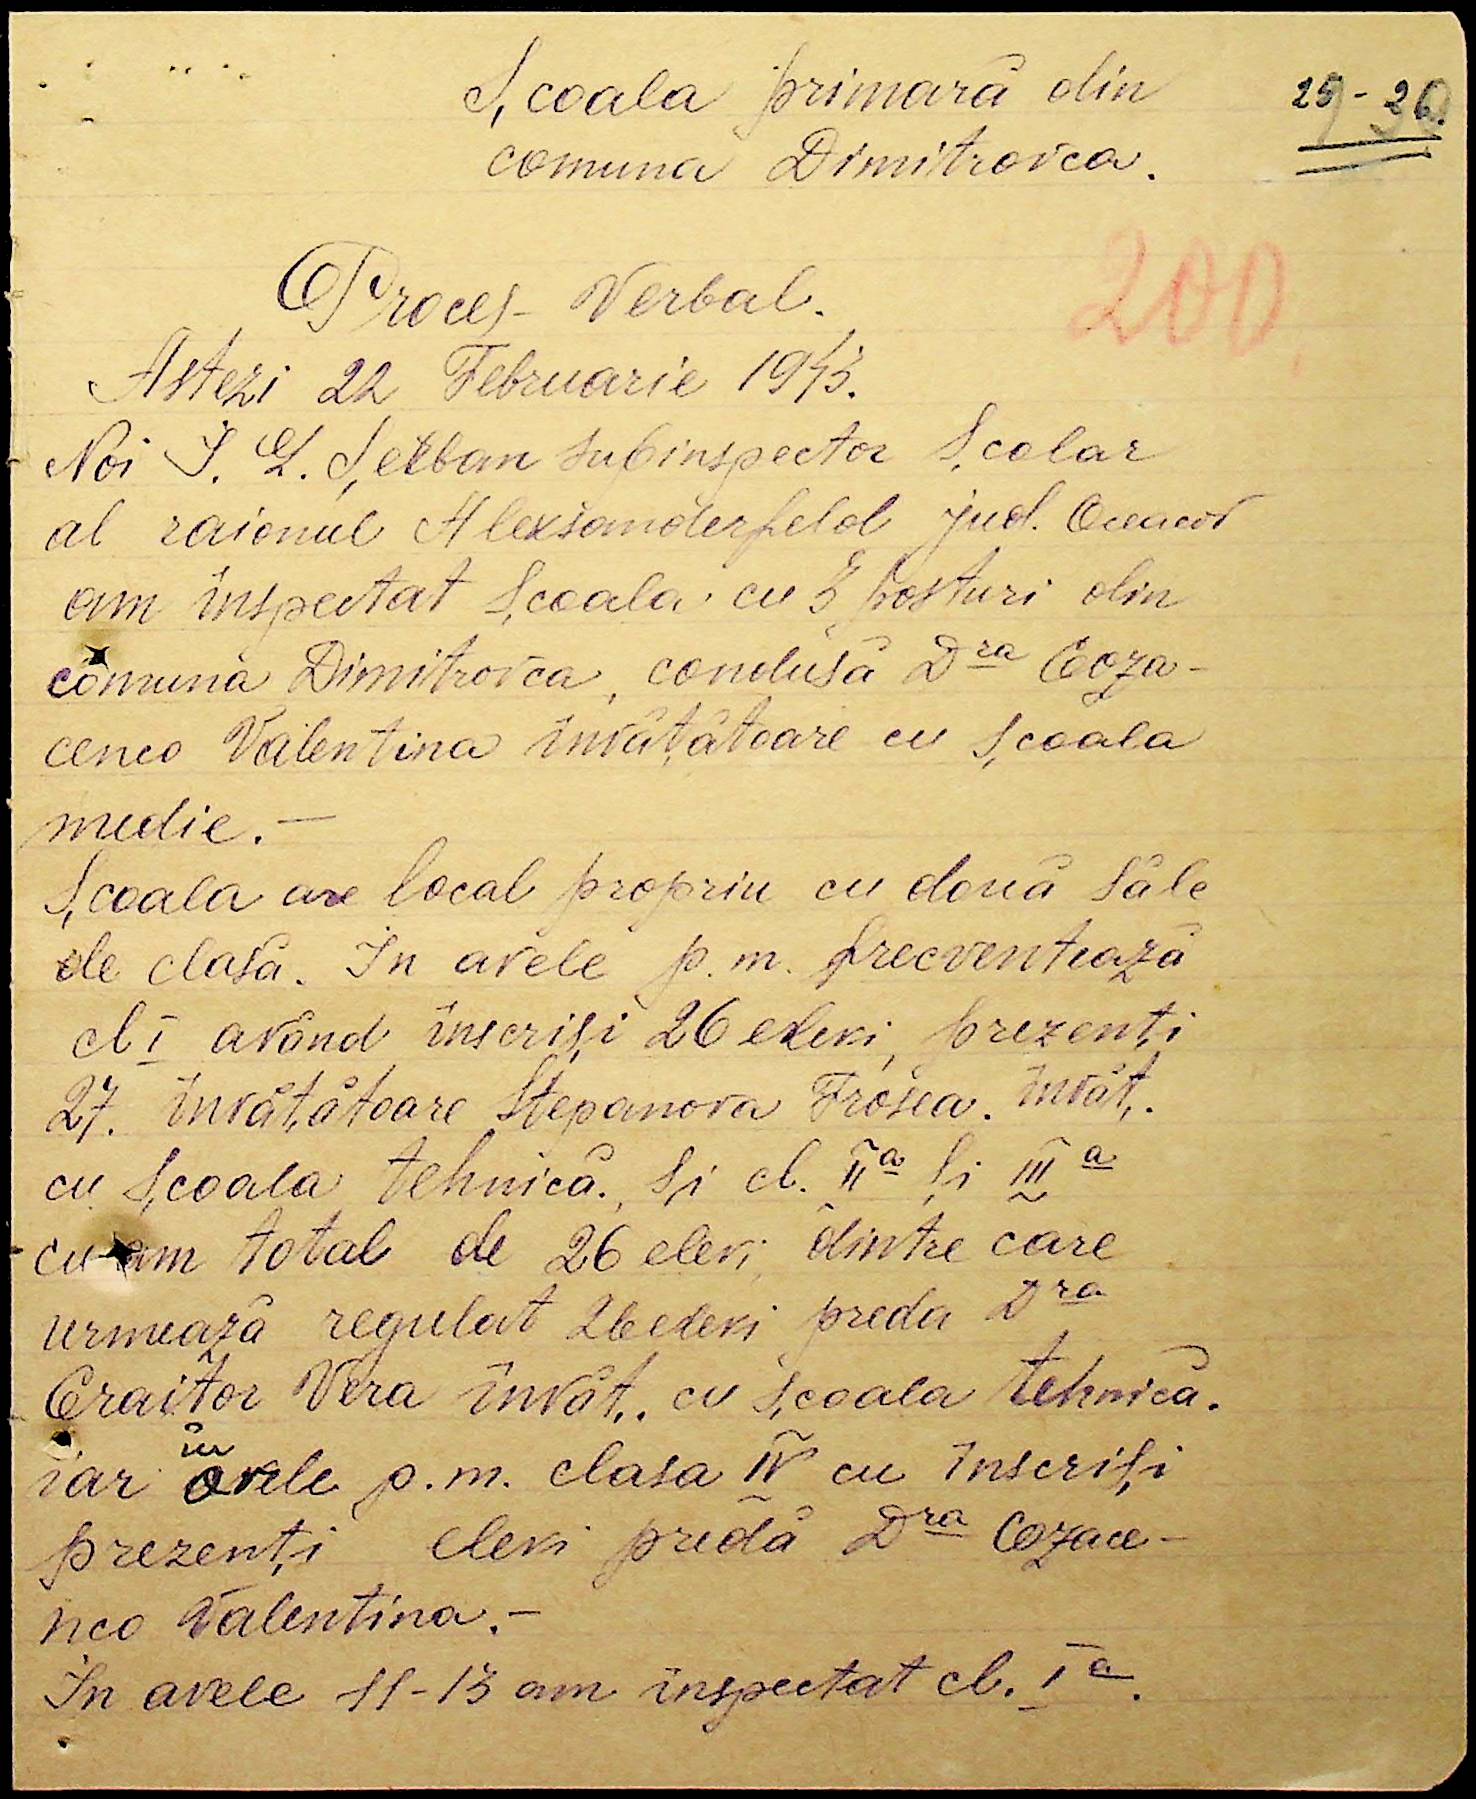 Școala primară din
comuna Dimitrovca.
200
Proces-Verbal.
Astezi 22 Februarie 1943.
Noi I. L. Șerban subinspector Școlar
al raionul Alexsanderfeld jud. Oceacov
am înspectat Școala cu 3 posturi din
comuna Dimitrovca, condusă Dra Coza-
cenco Valentina învățătoare cu Școala
medie.—
Școala are local propriu cu două săle
de clasă. In avele p.m. frecventează
cl I având înscriși 26 elevi, prezenți
27. învățătoare Stepanova Frosea. învăț.
cu Școala tehnică., și cl. IIa și IIIa
cu am total de 26 elevi, dintre care
urmează regulat 26 elevi preda Dra
Craitor Vera învăț.. cu școala tehnică.
iar în orele p.m. clasa IV cu înscriși
prezenți elevi predă Dra Cozace-
nco Valentina.—
In avele 11-13 am inspectat cl. Ia.